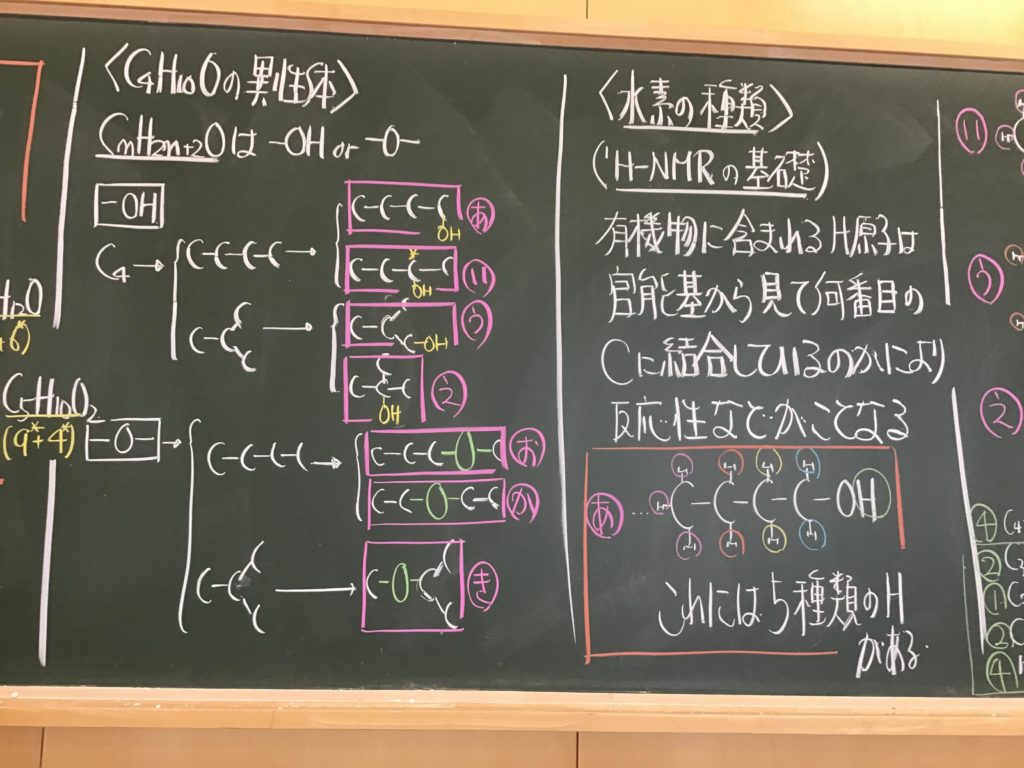 〈C₄H₁₀Oの異性体〉
CnH₂n₊₂Oは -OH or -O-
-OH
C₄→
C-C-C-C →
C-C-C-C
OH
あ
C-C-C*-C
OH
い
C-C
C
C
→
C-C
C
C-OH
う
C
C-C-C
OH
え
-O- →
C-C-C-C →
C-C-C-O-C
お
C-C-O-C-C
か
C-C
C
C
→
C-O-C
C
C
き
H₁₂O
+6*)
C₅H₁₀O₂
(9*+4*)
〈水素の種類〉
(¹H-NMRの基礎)
有機物に含まれるH原子は
官能基から見て何番目の
Cに結合しているのかにより
反応性などがことなる
H H H H
あ … H-C-C-C-C-OH
H H H H
これには5種類のH
がある.
い
う
え
④ C₄
②
①
②
④